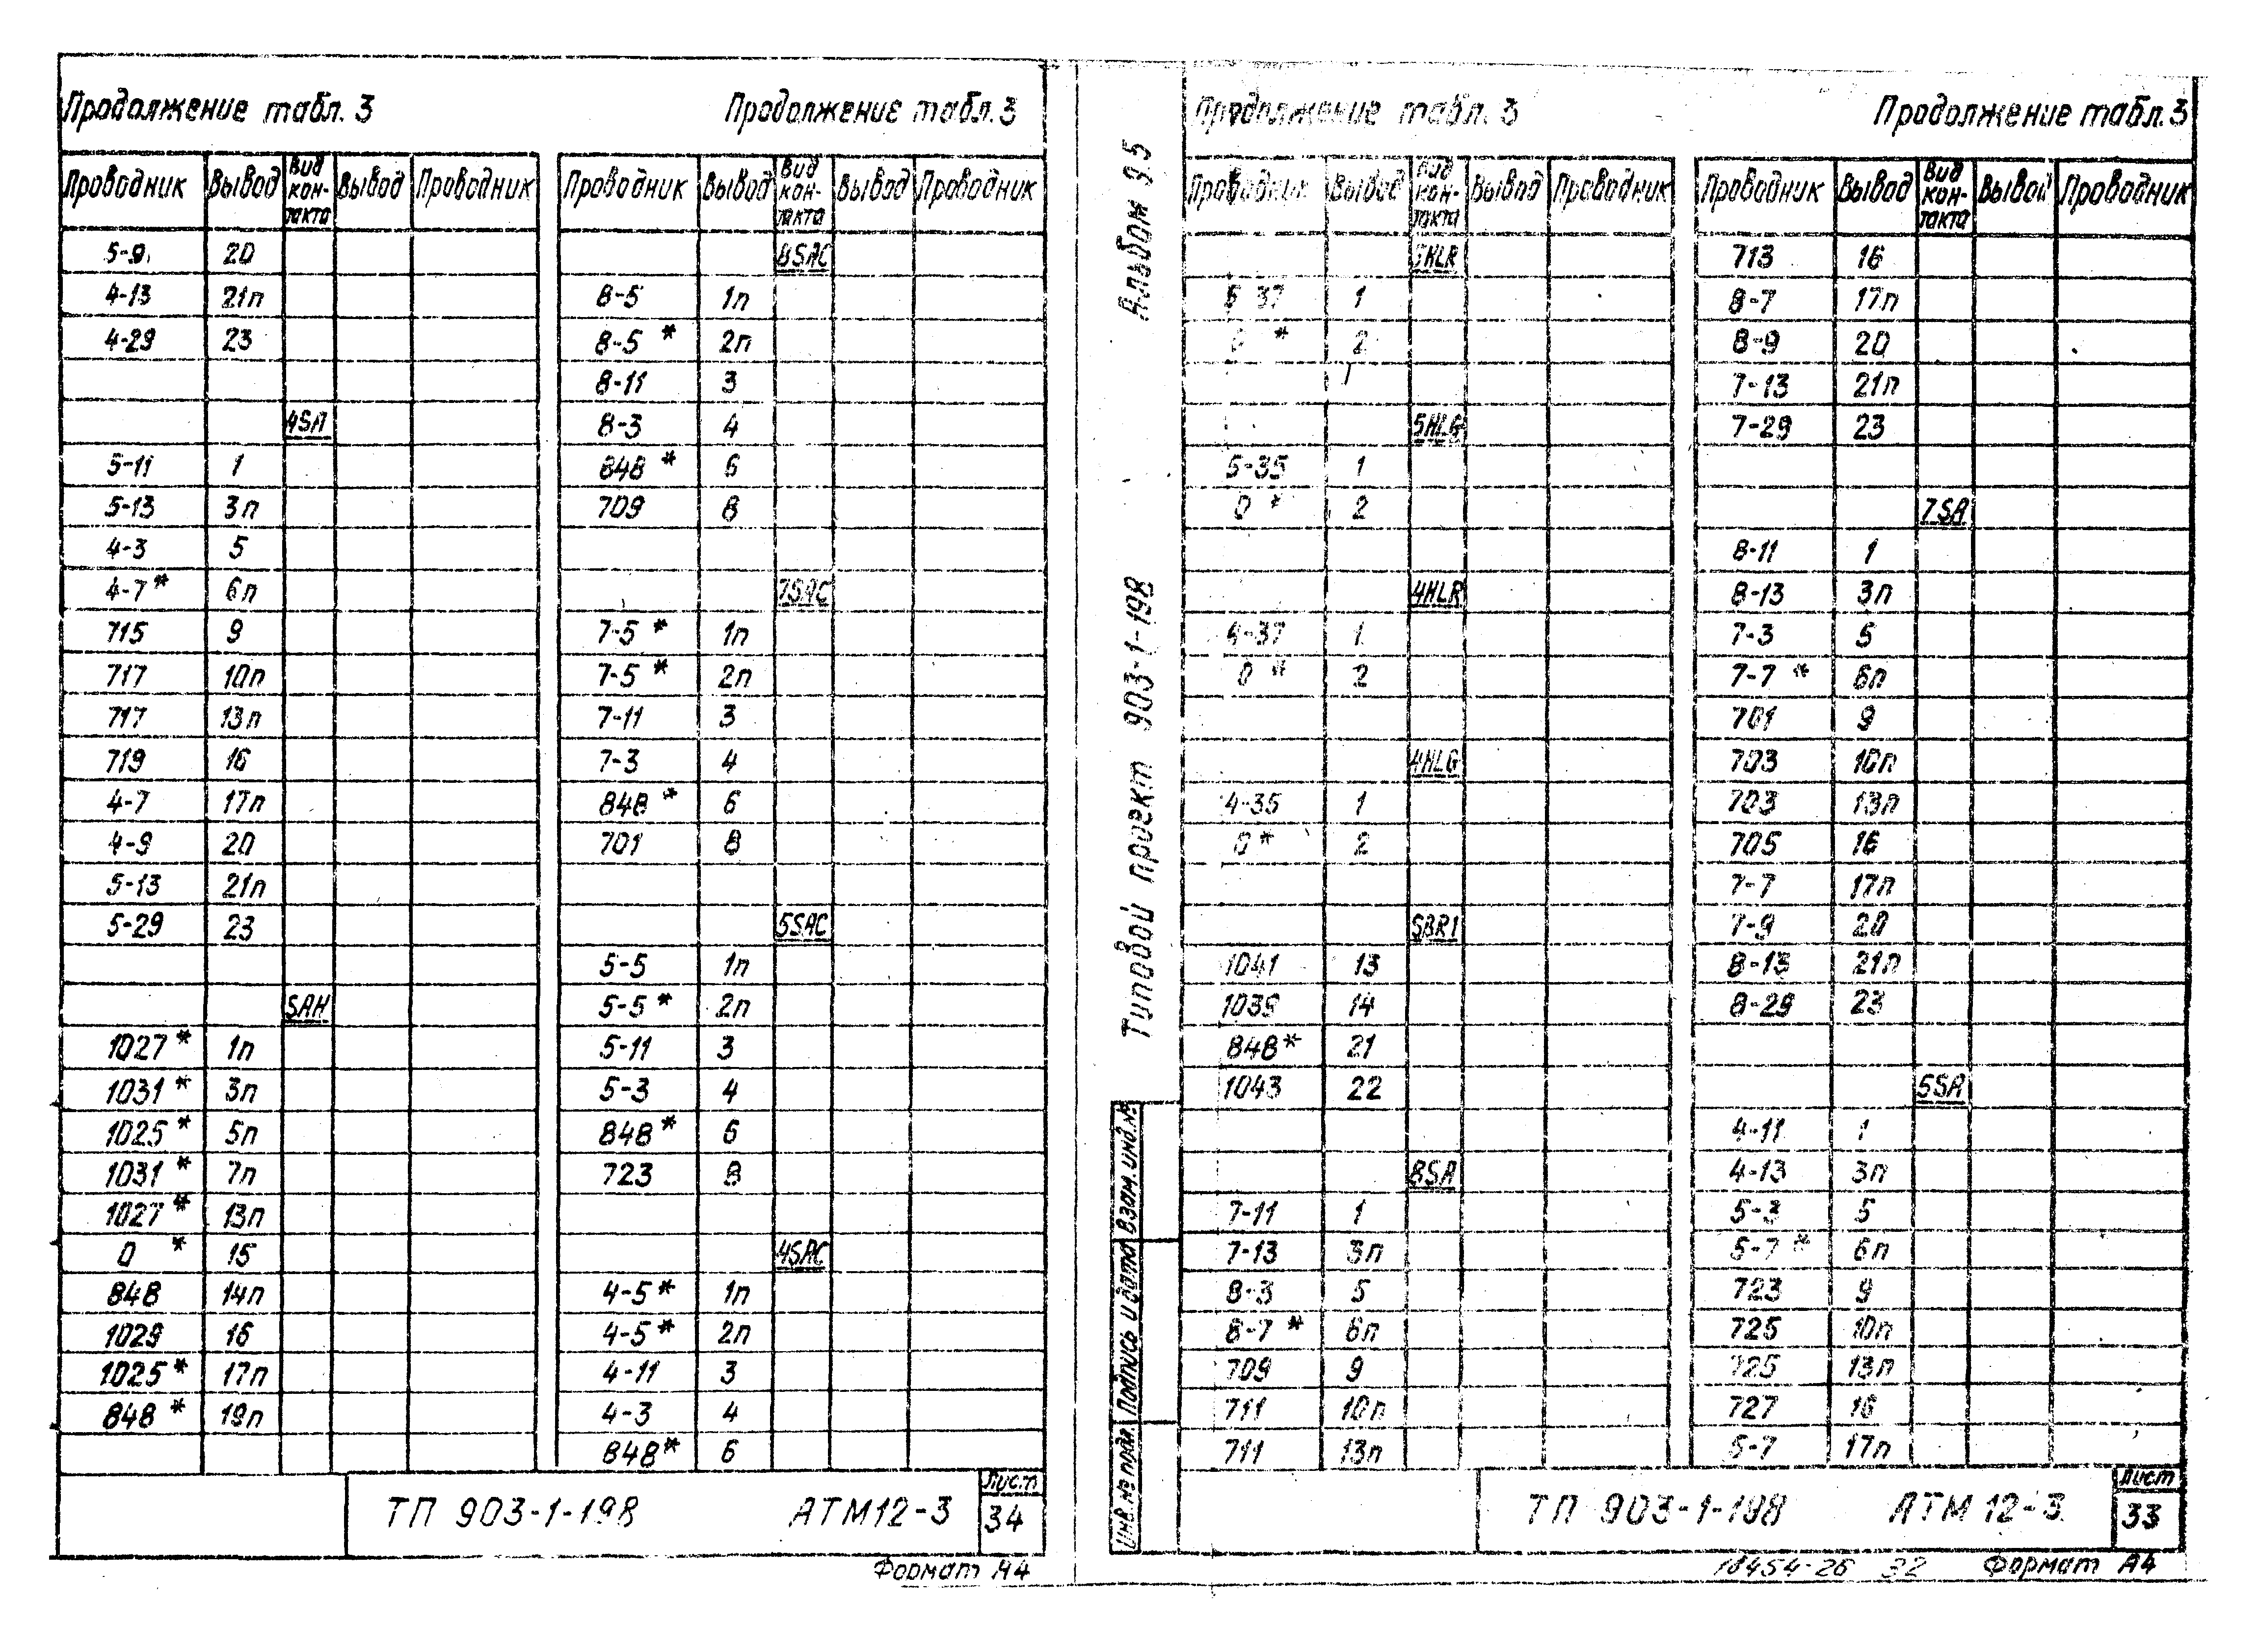 Продолжение табл. 3
Проводник Вывод Вид кон-такта Вывод Проводник
5-9 20
4-13 21п
4-29 23
4SA
5-11 1
5-13 3п
4-3 5
4-7* 6п
715 9
717 10п
717 13п
719 16
4-7 17п
4-9 20
5-13 21п
5-29 23
SAH
1027* 1п
1031* 3п
1025* 5п
1031* 7п
1027* 13п
0 * 15
848 14п
1029 16
1025* 17п
848 * 19п
Продолжение табл. 3
Проводник Вывод Вид кон-такта Вывод Проводник
8SAC
8-5 1п
8-5 * 2п
8-11 3
8-3 4
848 * 6
709 8
7SAC
7-5 * 1п
7-5 * 2п
7-11 3
7-3 4
848 * 6
701 8
5SAC
5-5 1п
5-5 * 2п
5-11 3
5-3 4
848 * 6
723 8
4SAC
4-5 * 1п
4-5 * 2п
4-11 3
4-3 4
848* 6
ТП 903-1-198 АТМ12-3
Лист
34
Формат А4
Альбом 9.5
Типовой проект 903-1-198
Взам. инд. №
Подпись и дата
Инв. № подл.
Продолжение табл. 3
Проводник Вывод Вид кон-такта Вывод Проводник
5HLR
5-37 1
0 * 2
5HLG
5-35 1
0 * 2
4HLR
4-37 1
0 * 2
4HLG
4-35 1
0 * 2
SBR1
1041 13
1039 14
848* 21
1043 22
8SA
7-11 1
7-13 3п
8-3 5
8-7 * 6п
709 9
711 10п
711 13п
Продолжение табл. 3
Проводник Вывод Вид кон-такта Вывод Проводник
713 16
8-7 17п
8-9 20
7-13 21п
7-29 23
7SA
8-11 1
8-13 3п
7-3 5
7-7 * 6п
701 9
703 10п
703 13п
705 16
7-7 17п
7-9 20
8-13 21п
8-29 23
5SA
4-11 1
4-13 3п
5-3 5
5-7 * 6п
723 9
725 10п
725 13п
727 16
5-7 17п
ТП 903-1-198 АТМ 12-3
Лист
33
18454-26 32 Формат А4